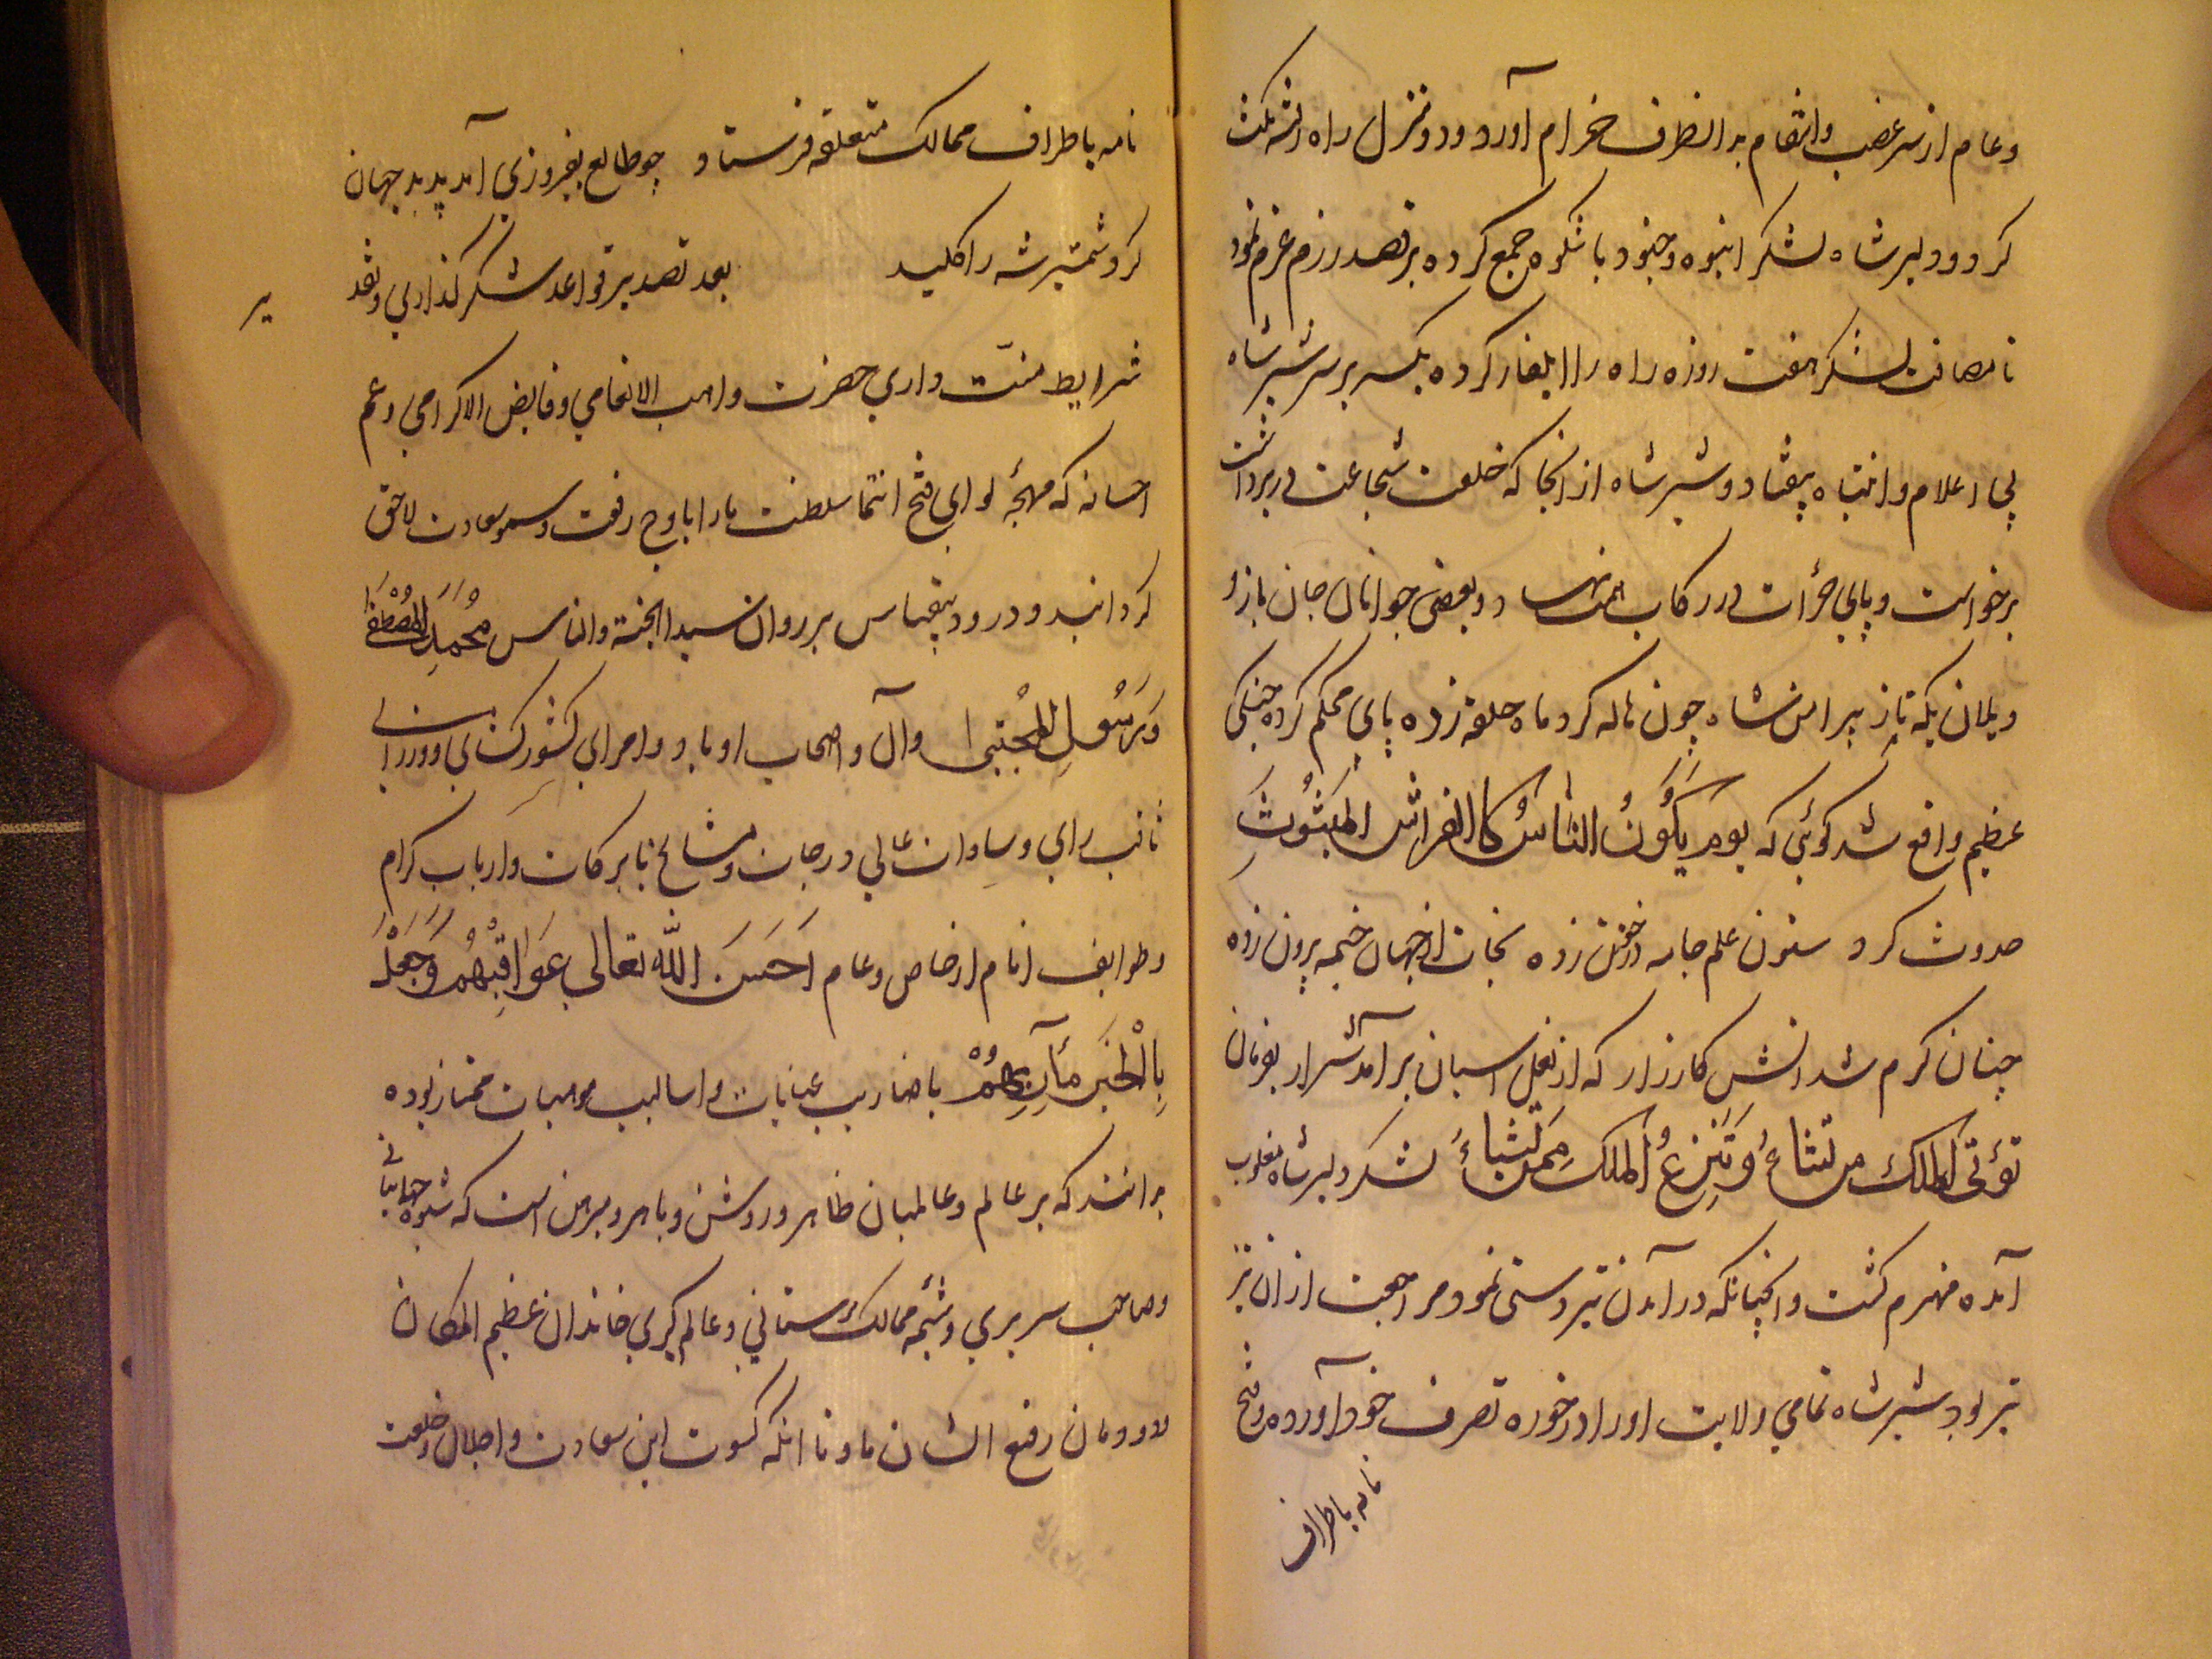 وعام از سر غضب وانتقام بدانطرف خرام آورد ودو منزل راه
کرد ودلیر شاه لشکر انبوه وجنود باشکوه جمع کرده بر قصد رزم عزم نمود
بامصافت لشکر هفت روزه راه را ایلغار کرده یکسر بر سر شیر شاه
بی اعلام وانتباه بیفتاد وشیر شاه از انجا که خلعت شجاعت در بر داشت
برخواست وپای جرأت در رکاب نهاد وبعضی جوانان جان باز و
یلان یکه تاز پیرامن شاه چون هاله کرد ماه حلقه زده پای محکم کرده جنکی
عظیم واقع شد کوئی که یوم یَکُونُ النّاسُ کالفراش المبثُوثِ
حدوث کرد ستون علم جامه در خون زده نجات از جهان خیمه بیرون زده
چنان کرم شد اتش کارزار که از نعل اسبان بر آمد شرار بفرمان
تؤتی الملک من تشاءُ وَتَنزِعُ الملک مِمَن تشاءُ لشکر دلیر شاه مغلوب
آمده منهزم کشت وانچنانکه در آمدن تیز دستی نمود مراجعت از ان تیز
تر بود شیر شاه تمامی ولایت اورا در حوزه تصرف خود آورده وفتح
نامه باطراف
نامه باطراف ممالک متعلقه فرستاد چو طالع بفیروزی آمد پدید جهان
کرد شمشیر شه را کلید بعد تصدیر قواعد شکر کذاری و
یر
شرایط منّت داری حضرت واهب الانعامی وفایض الاکرامی وعم
احسانه که مهجۀ لوای فتح انتما سلطنت مارا باوج رفعت وسمو سعادت لاحق
کردانید ودرود بیقیاس بر روان سید الجنة والناس مُحُمَدِ المُصْطَفَا
وَرَسُولِ المُجْتَبی وآل واصحاب او باد وامرای کشور کشای ووزرای
ثاقب رای وسادات عالی درجات ومشایخ بابرکات وارباب کرام
وطوایف انام از خاص وعام اَحَسَنَ اللّه تعالی عَوَاقِبَهُم وَجَعَلَ
بِالْخَیر مَآرِبِهُمْ باضاریب عنایات واسالیب موهبات ممتاز بوده
بدانند که بر عالم وعالمیان ظاهر وروشن وباهر ومبرهن است که شیوه جهانبانی
وصاحب سریری وشیمه ممالک ستانی وعالم کیری خاندان عظیم المکان
ودودمان رفیع الشان ماو تا انکه کسوت این سعادت واجلال وخلعت